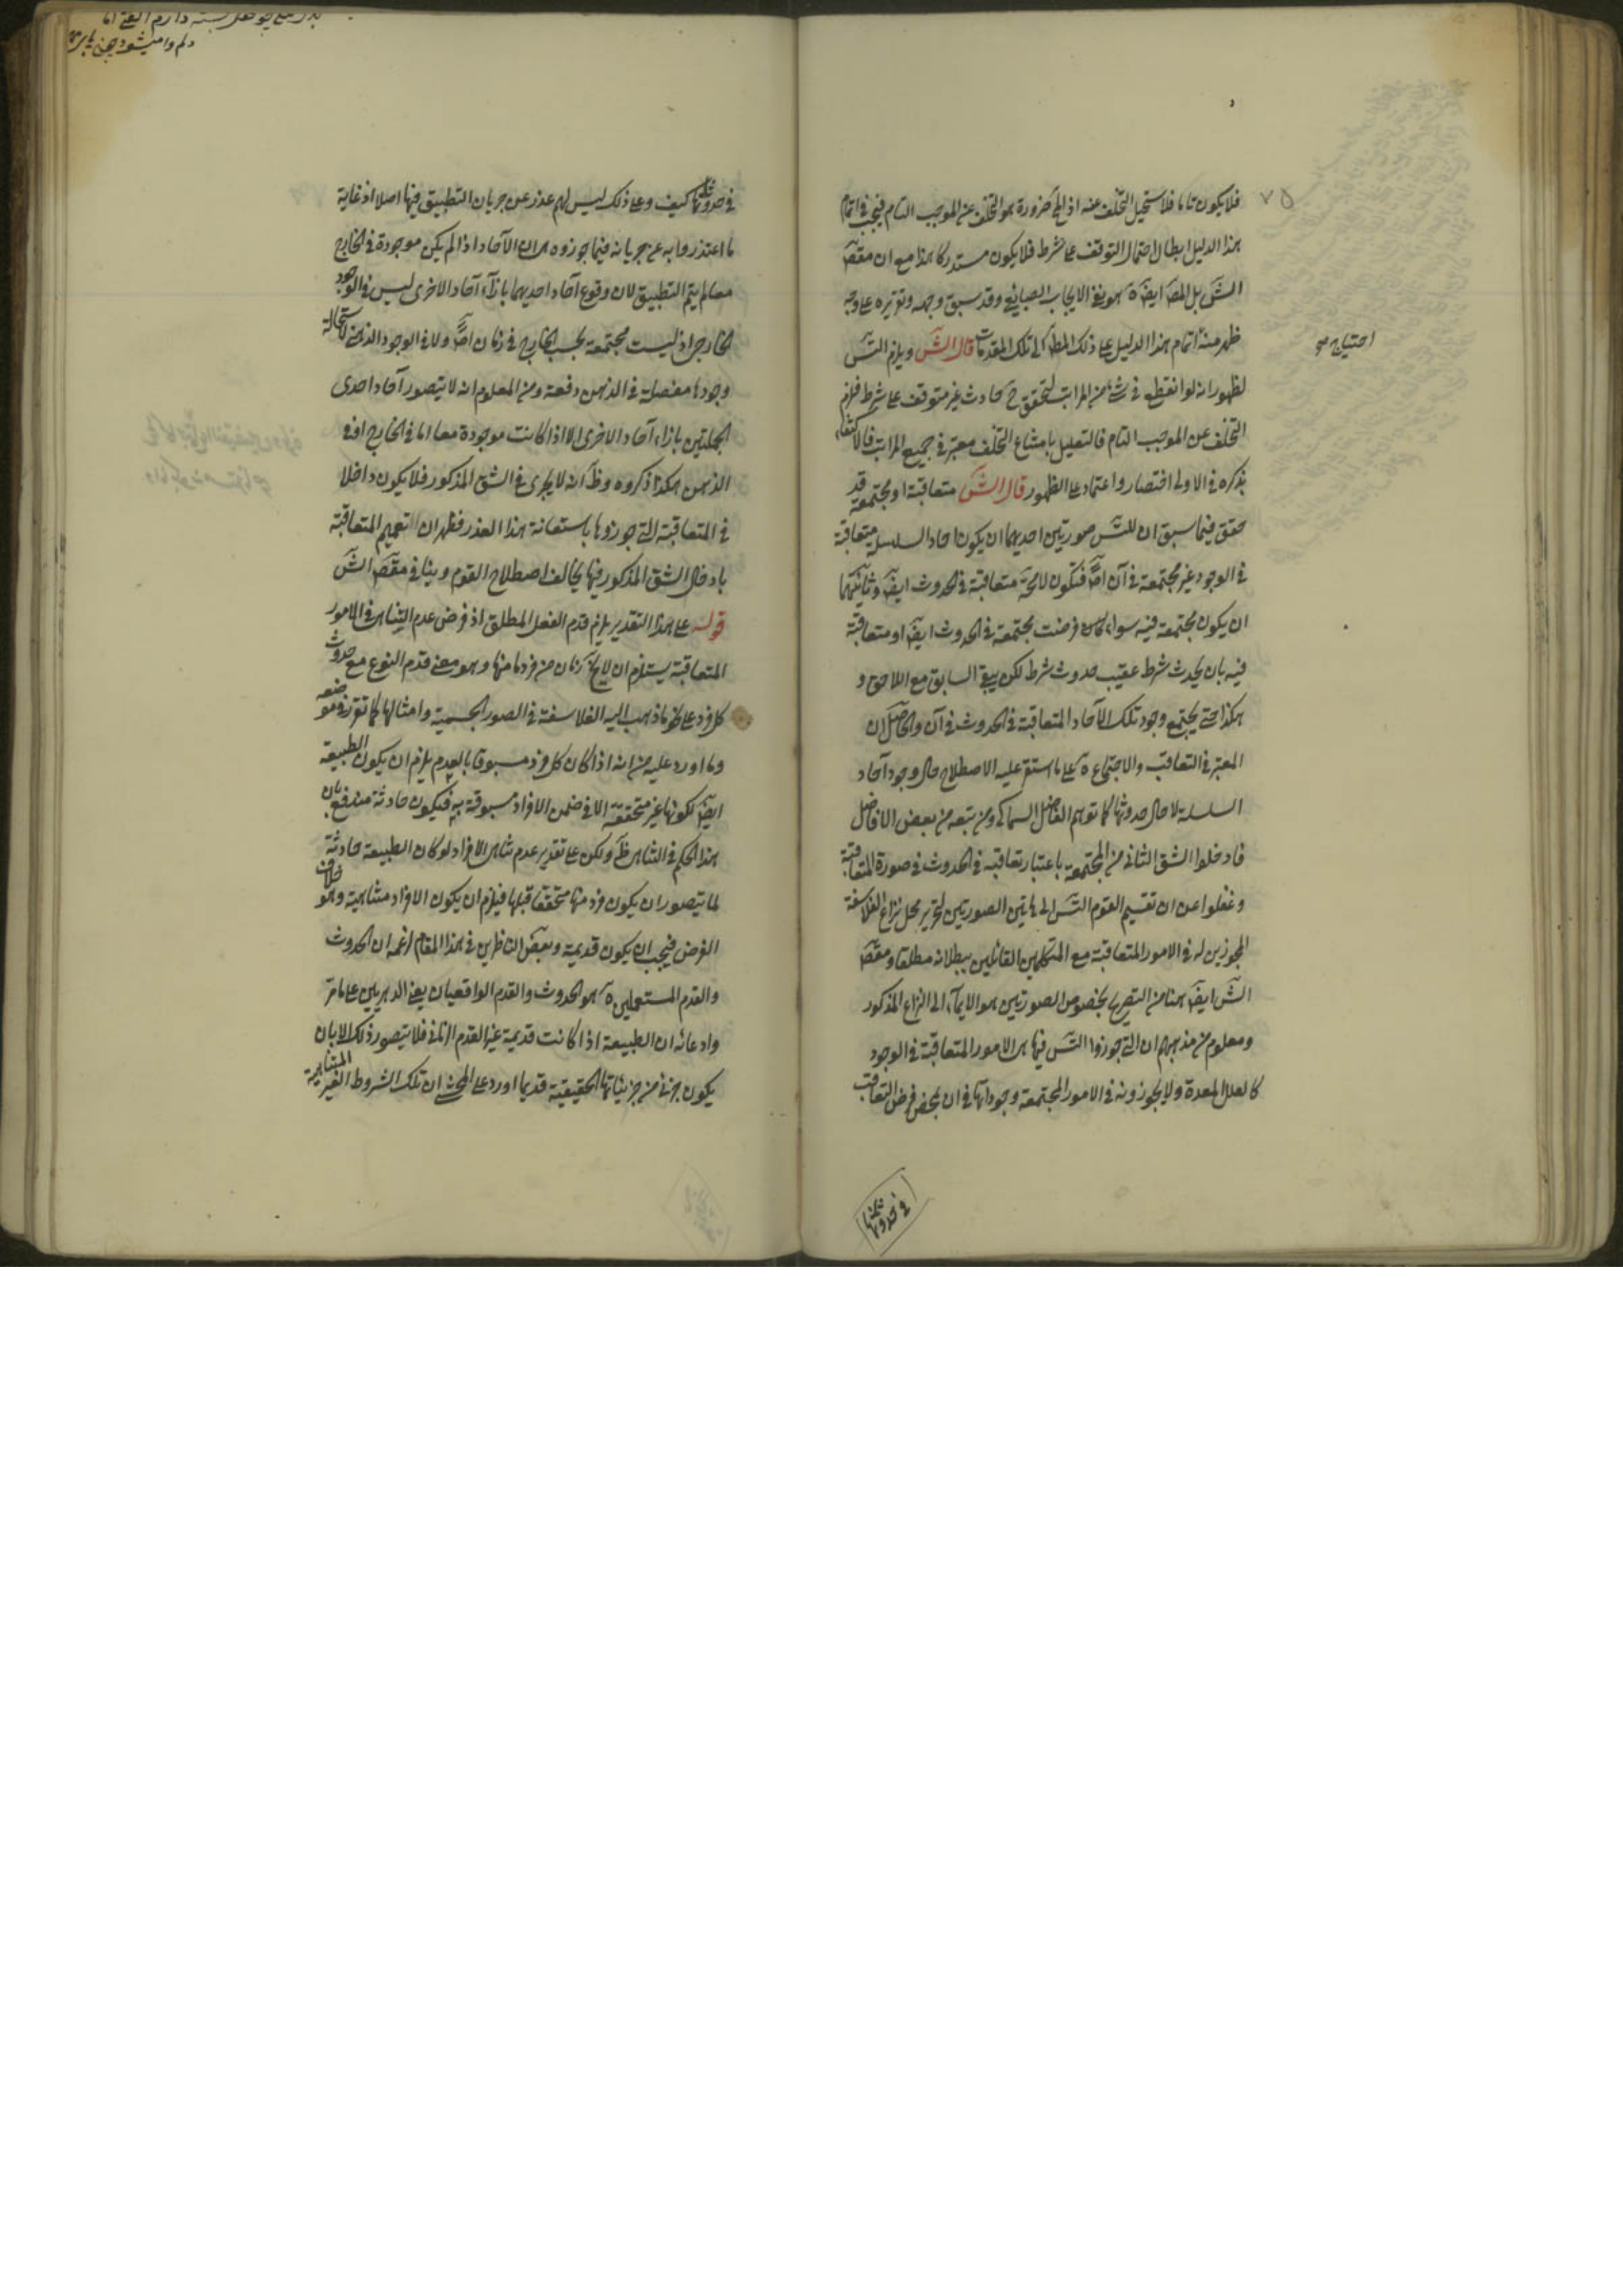 فلا يكون تاما فلا يستحيل التخلف عنه اذ المح ضرورة هو التخلف عن الموجب التام فيجب في اتمام
هذا الدليل ابطال احتمال التوقف على شرط فلا يكون مستدركا هذا مع ان مقصَ
الشَ بل المصَ ايضَ ة هو نفى الايجاب وقد سبق وجهه وتقريره على وجه
ظهر منه اتمام هذا الدليل على ذلك المط الى تلك المقدمات قال الشَ ويلزم التسَ
احتياج
لظهور انه لو انقطع في شئ من المراتب لتحقق ح حادث غير متوقف على شرط فلزم
التخلف عن الموجب التام فالتعليل بامتناع التخلف معتبر في جميع المراتب فالاكتفاء
بذكره في الاولى اقتصار واعتماد على الظهور قال الشَ متعاقبة او مجتمعة قد
حقق فيما سبق ان للتسَ صورتين احديهما ان يكون احاد السلسلة متعاقبة
في الوجود غير مجتمعة في آن اصلا فتكون لا محة متعاقبة في الحدوث ايضَ وثانيتهما
ان يكون مجتمعة فيه سواء كانت فرضت مجتمعة في الحدوث ايضَ او متعاقبة
فيه بان يحدث شرط عقيب حدوث شرط لكن يبقى السابق مع اللاحق و
هكذا حتى يجتمع وجود تلك الآحاد المتعاقبة في الحدوث في آن والحاصل ان
المعتبر في التعاقب والاجتماع ة على ما استقر عليه الاصطلاح حال وجود آحاد
السلسلة لا حال حدوثها كما توهم الفاضل السماكى ومن تبعه من بعض الافاضل
فادخلوا الشق الثانى من المجتمعة باعتبار تعاقبه في الحدوث في صورة المتعاقبة
وغفلوا عن ان تقسيم القوم التسَ الى هاتين الصورتين لتحرير محل نزاع الفلاسفة
المجوزين له في الامور المتعاقبة مع المتكلمين القائلين ببطلانه مطلقا ومقصَ
الشَ ايضَ هنا من التصريح بخصوص الصورتين هو الايماء الى النزاع المذكور
ومعلوم من مذهبهم ان التى جوزوا التسَ فيها هى الامور المتعاقبة في الوجود
كالعلل المعدة ولا يجوزونه في الامور المجتمعة وجوداتها في ان بمحض فرض التعاقب
في حدوثاتها
في حدوثاتها كيف وعلى ذلك ليس لهم عذر عن جريان التطبيق فيها اصلا اذ غاية
ما اعتذروا به عن جريانه فيما جوزوه هى ان الآحاد اذا لم يكن موجودة في الخارج
معا لم يتم التطبيق لان وقوع آحاد احديهما بازاء آحاد الاخرى ليس في الوجود
الخارجى اذ ليست مجتمعة بحسب الخارج في زمان اصلا ولا في الوجود الذهنى لاستحالة
وجودها مفصلة في الذهن دفعة ومن المعلوم انه لا يتصور آحاد احدى
الجملتين بازاء آحاد الاخرى الا اذا كانت موجودة معا اما في الخارج او في
الذهن هكذا ذكروه وظَ انه لا يجرى في الشق المذكور فلا يكون داخلا
في المتعاقبة التى جوزوها باستعانة هذا العذر فظهر ان تعميم المتعاقبة
بادخال الشق المذكور فيها يخالف اصطلاح القوم وينافى مقصَ الشَ
قوله على هذا التقدير يلزم قدم الفعل المطلق اذ فرض عدم التناهى في الامور
المتعاقبة يستلزم ان لا يخلو زمان من فرد ما منها وهو معنى قدم النوع مع حدوث
كل فرد على نحو ما ذهب اليه الفلاسفة في الصور الجسمية وامثالها كما تقرر في موضعه
وما اورد عليه من انه اذا كان كل فرد مسبوقا بالعدم يلزم ان يكون الطبيعة
ايضَ لكونها غير متحققة الا في ضمن الافراد مسبوقة به فيكون حادثة مندفع بان
هذا الحكم في المتناهى ظَ ولكن على تقدير عدم تناهى الافراد لو كان الطبيعة حادثة
لما يتصور ان يكون فرد منها متحققا قبلها فيلزم ان يكون الافراد متناهية وهو خلاف
الفرض فيجب ان يكون قديمة وبعض الناظرين في هذا المقام لزعمه ان الحدوث
والقدم المستعملين ة هو الحدوث والقدم الواقعيان يعنى الدهريين على ما مر
وادعائه ان الطبيعة اذا كانت قديمة غير القدم الزمانى فلا يتصور ذلك الا بان
يكون جزئى من جزئياتها الحقيقية قديما اورد على المحشى ان تلك الشروط الغير المتناهية